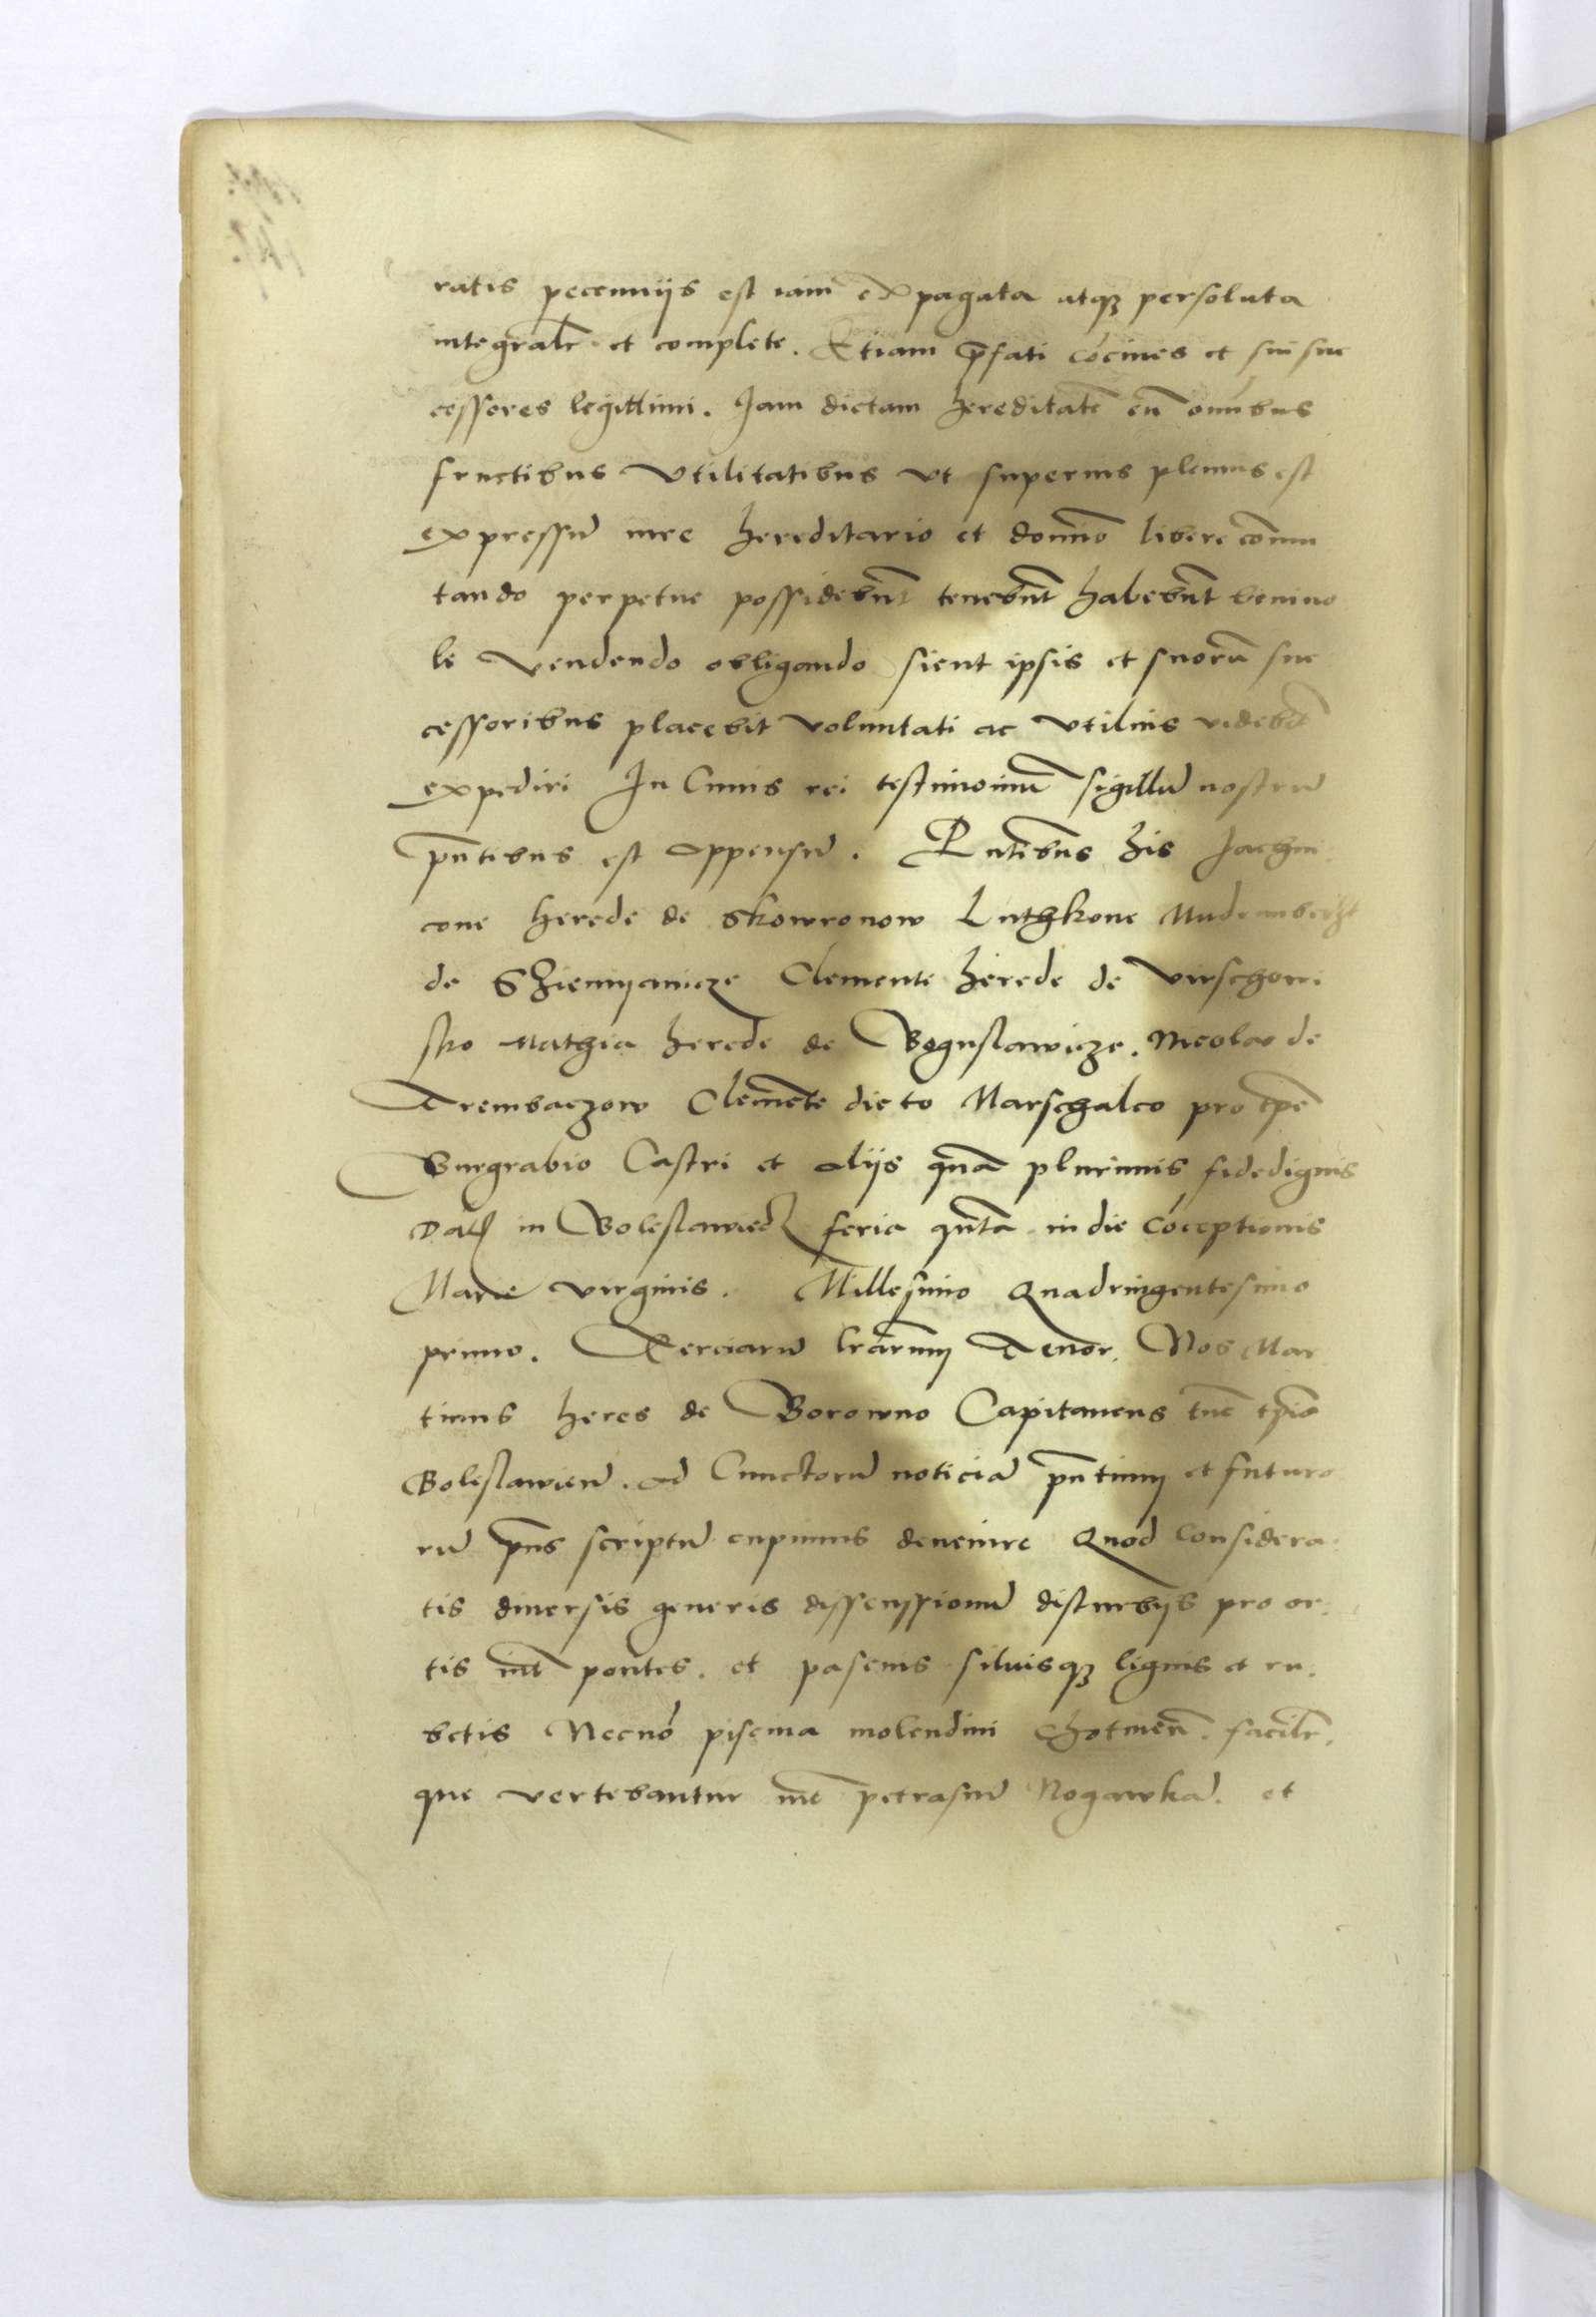 ratis pecunijs est iam expagata atqz persoluta
integralr et complete. Etiam p̄fati cōciues et sui suc
cessores legittimi. Iam dictam hereditatē cū om̄ibus
fructibus Vtilitatibus vt superius plenius est
expressū iure hereditario et domīo libere cōmu
tando perpetue possidebūt tenebūt habebūt
le vendendo obligando sicut ipsis et suorū suc
cessoribus placebit voluntati ac vtilius videbit
expediri In Cuius rei testimoniū sigillū nostrū
pn̄tibus est appensū. Pn̄tibus his
cone herede de Skowronow Luthkone
de Clemente herede de
sko Mathia herede de Boguslawicze. Nicolao de
Trembaczow Clemēte dicto Marschalco pro tp̄e
Burgrabio Castri et alijs quā plurimis fidedignis
Dat in Boleslawiecz feria qūta in die Cōceptionis
Marie virginis. Millesimo Quadringentesimo
primo. Terciarū lrarum Tenor. Nos Mar
tinus heres de Borowno Capitaneus tūc tp̄is
Boleslawien̄. ad Cunctorū noticiā pn̄tium et futuro
rū pn̄s scriptū cupimus deuenire Quod Considera:
tis diuersis generis dissenssionū disturbijs pro or:
tis int̄ pontes. et pascuis siluisqz lignis et ru:
betis Necnō piscina molendini Chotinen̄. facilr̄.
que vertebantur int̄ petrasiū Nogawkā. et